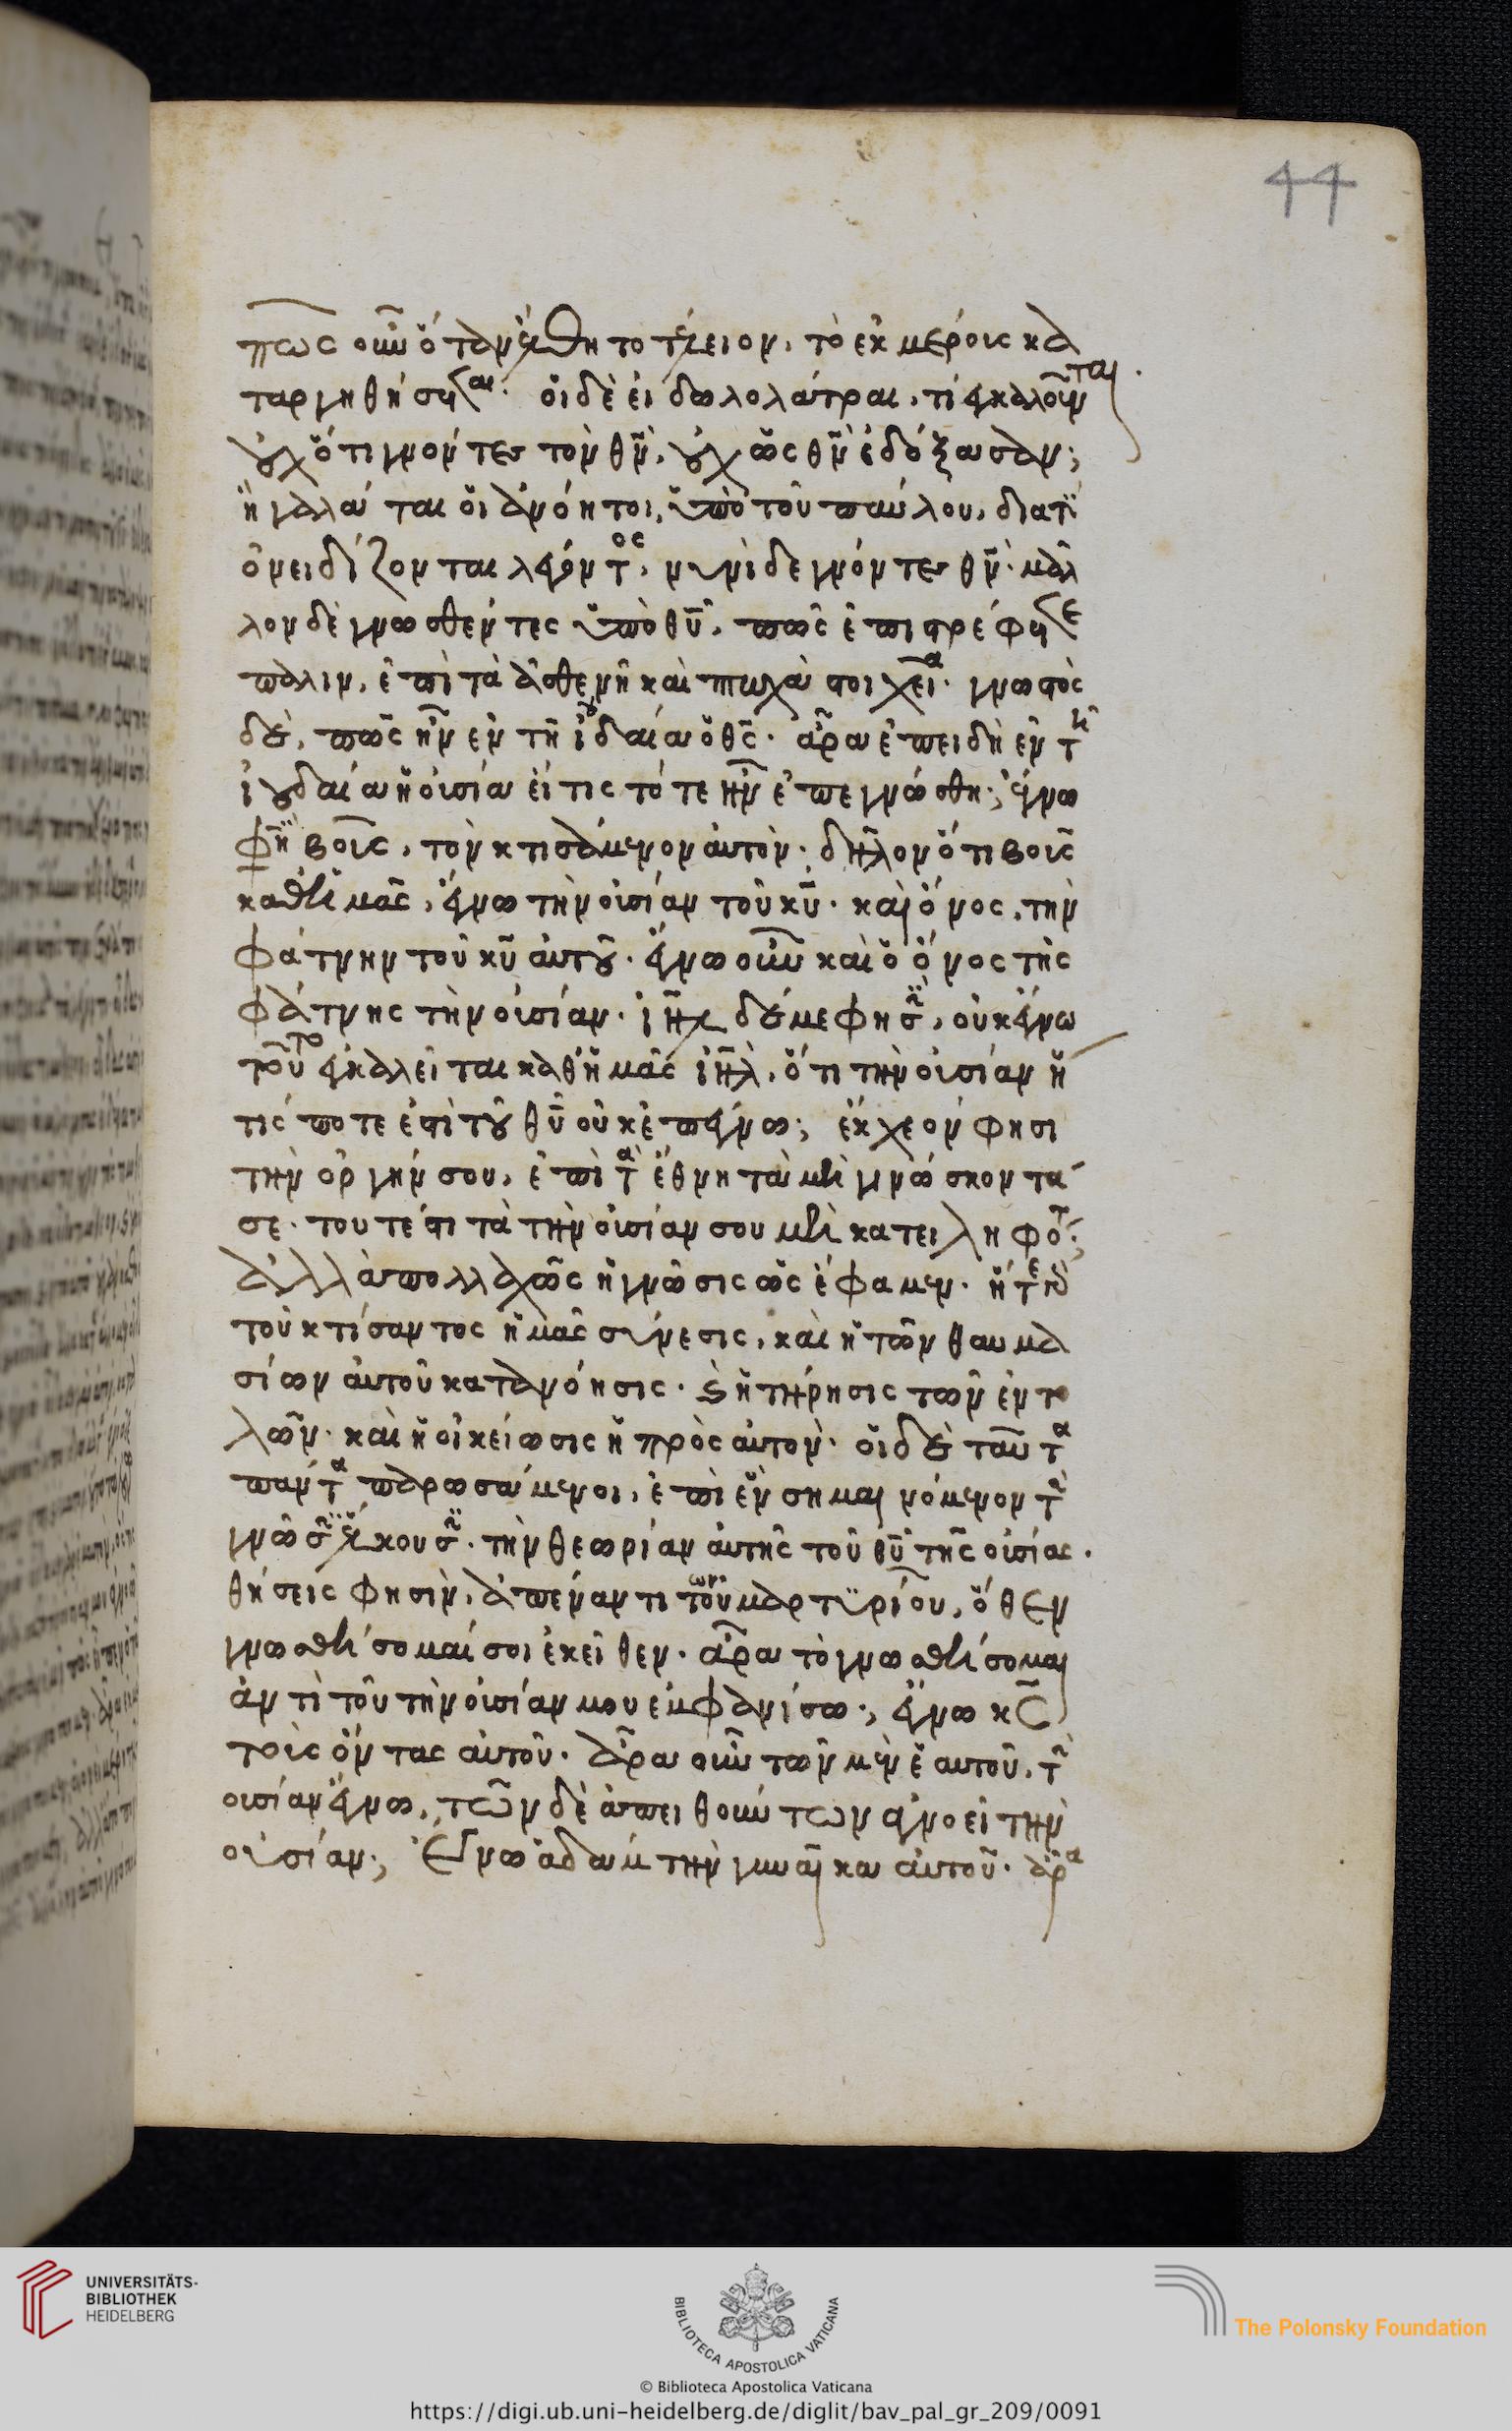 44
πῶς οὖν ὅταν ἔλθη το τέλειον, τὸ ἐκ μέρους κα
ταργηθήσεται· οἱ δὲ εἰδωλολάτραι, τί ἐγκαλοῦνται·
οὐχ ὅτι γνόντες τὸν θν̅, οὐχ ὡς θν̅ ἐδόξασαν;
ἢ γαλάται οἱ ἀνόητοι, ὑπὸ τοῦ παύλου, διατί
ὀνειδίζονται λέγοντος, νυνὶ δε γνόντες θν̅· μᾶλ
λον δὲ γνωσθέντες ὑπὸ θυ̅, πῶς ἐπιστρέφετε
πάλιν, ἐπὶ τὰ ἀσθενῆ καὶ πτωχὰ στοιχεῖα· γνωστὸς
δὲ, πῶς ἦν ἐν τῆ ἰουδαία ὁ θς̅· ἆρα ἐπειδὴ ἐν τῆ
ἰουδαία ἡ οὐσία εἴ τις τότε ἦν ἐπεγνώσθη; ἔγνω
φησὶ βοῦς, τὸν κτισάμενον αὐτὸν· δῆλον ὅτι βοῦς
καθ' ἡμᾶς, ἔγνω τὴν οὐσίαν τοῦ κυ̅· καὶ ὄνος, τὴν
φάτνην τοῦ κυ̅ αὐτοῦ· ἔγνω οὖν καὶ ὁ ὄνος τῆς
φάτνης τὴν οὐσίαν· ιηλ̅ δέ με φησὶν, οὐκ ἔγνω
τοῦτο ἐγκαλεῖται καθ' ἡμᾶς ιηλ̅, ὅτι τὴν οὐσίαν ἥ
τίς ποτε ἐστὶ τοῦ θυ̅ οὐκ ἐπέγνω; ἔκχεον φησι
τὴν ὀργήν σου, ἐπὶ τὰ ἔθνη τὰ μὴ γινώσκοντα
σε· τουτέστι τὰ τὴν οὐσίαν σου μὴ κατειληφότα;
ἀλλὰ πολλαχῶς ἡ γνῶσις ὡς ἔφαμεν· ἥ τε γὰρ
τοῦ κτίσαντος ἡμᾶς σύνεσις, καὶ ἡ τῶν θαυμα
σίων αὐτοῦ κατανόησις· καὶ ἡ τήρησις τῶν ἐντο
λῶν· καὶ ἡ οἰκείωσις ἡ πρὸς αὐτον· οἱ δὲ ταῦτα
πάντα παρωσάμενοι, ἐπὶ ἓν σημαινόμενον τὴν
γνῶσιν ἕλκουσιν· τὴν θεωρίαν αὐτῆς τοῦ θυ̅ τῆς οὐσίας·
θήσεις φησὶν, ἀπέναντι τῶν μαρτυρίου, ὅθεν
γνωσθήσομαί σοι ἐκεῖθεν· ἆρα τὸ γνωσθήσομαι
ἀντὶ τοῦ τὴν οὐσίαν μου ἐμφανίσω; ἔγνω κς̅
τοὺς ὄντας αὐτοῦ· ἆρα οὖν τῶν μὲν ἑαυτοῦ, τὴν
οὐσίαν ἔγνω, τῶν δὲ ἀπειθούντων ἀγνοεῖ τὴν
οὐσίαν; Ἔγνω ἀδὰμ τὴν γυναῖκα αὐτοῦ· ἆρα
UNIVERSITÄTS-
BIBLIOTHEK
HEIDELBERG
BIBLIOTECA APOSTOLICA VATICANA
The Polonsky Foundation
© Biblioteca Apostolica Vaticana
https://digi.ub.uni-heidelberg.de/diglit/bav_pal_gr_209/0091